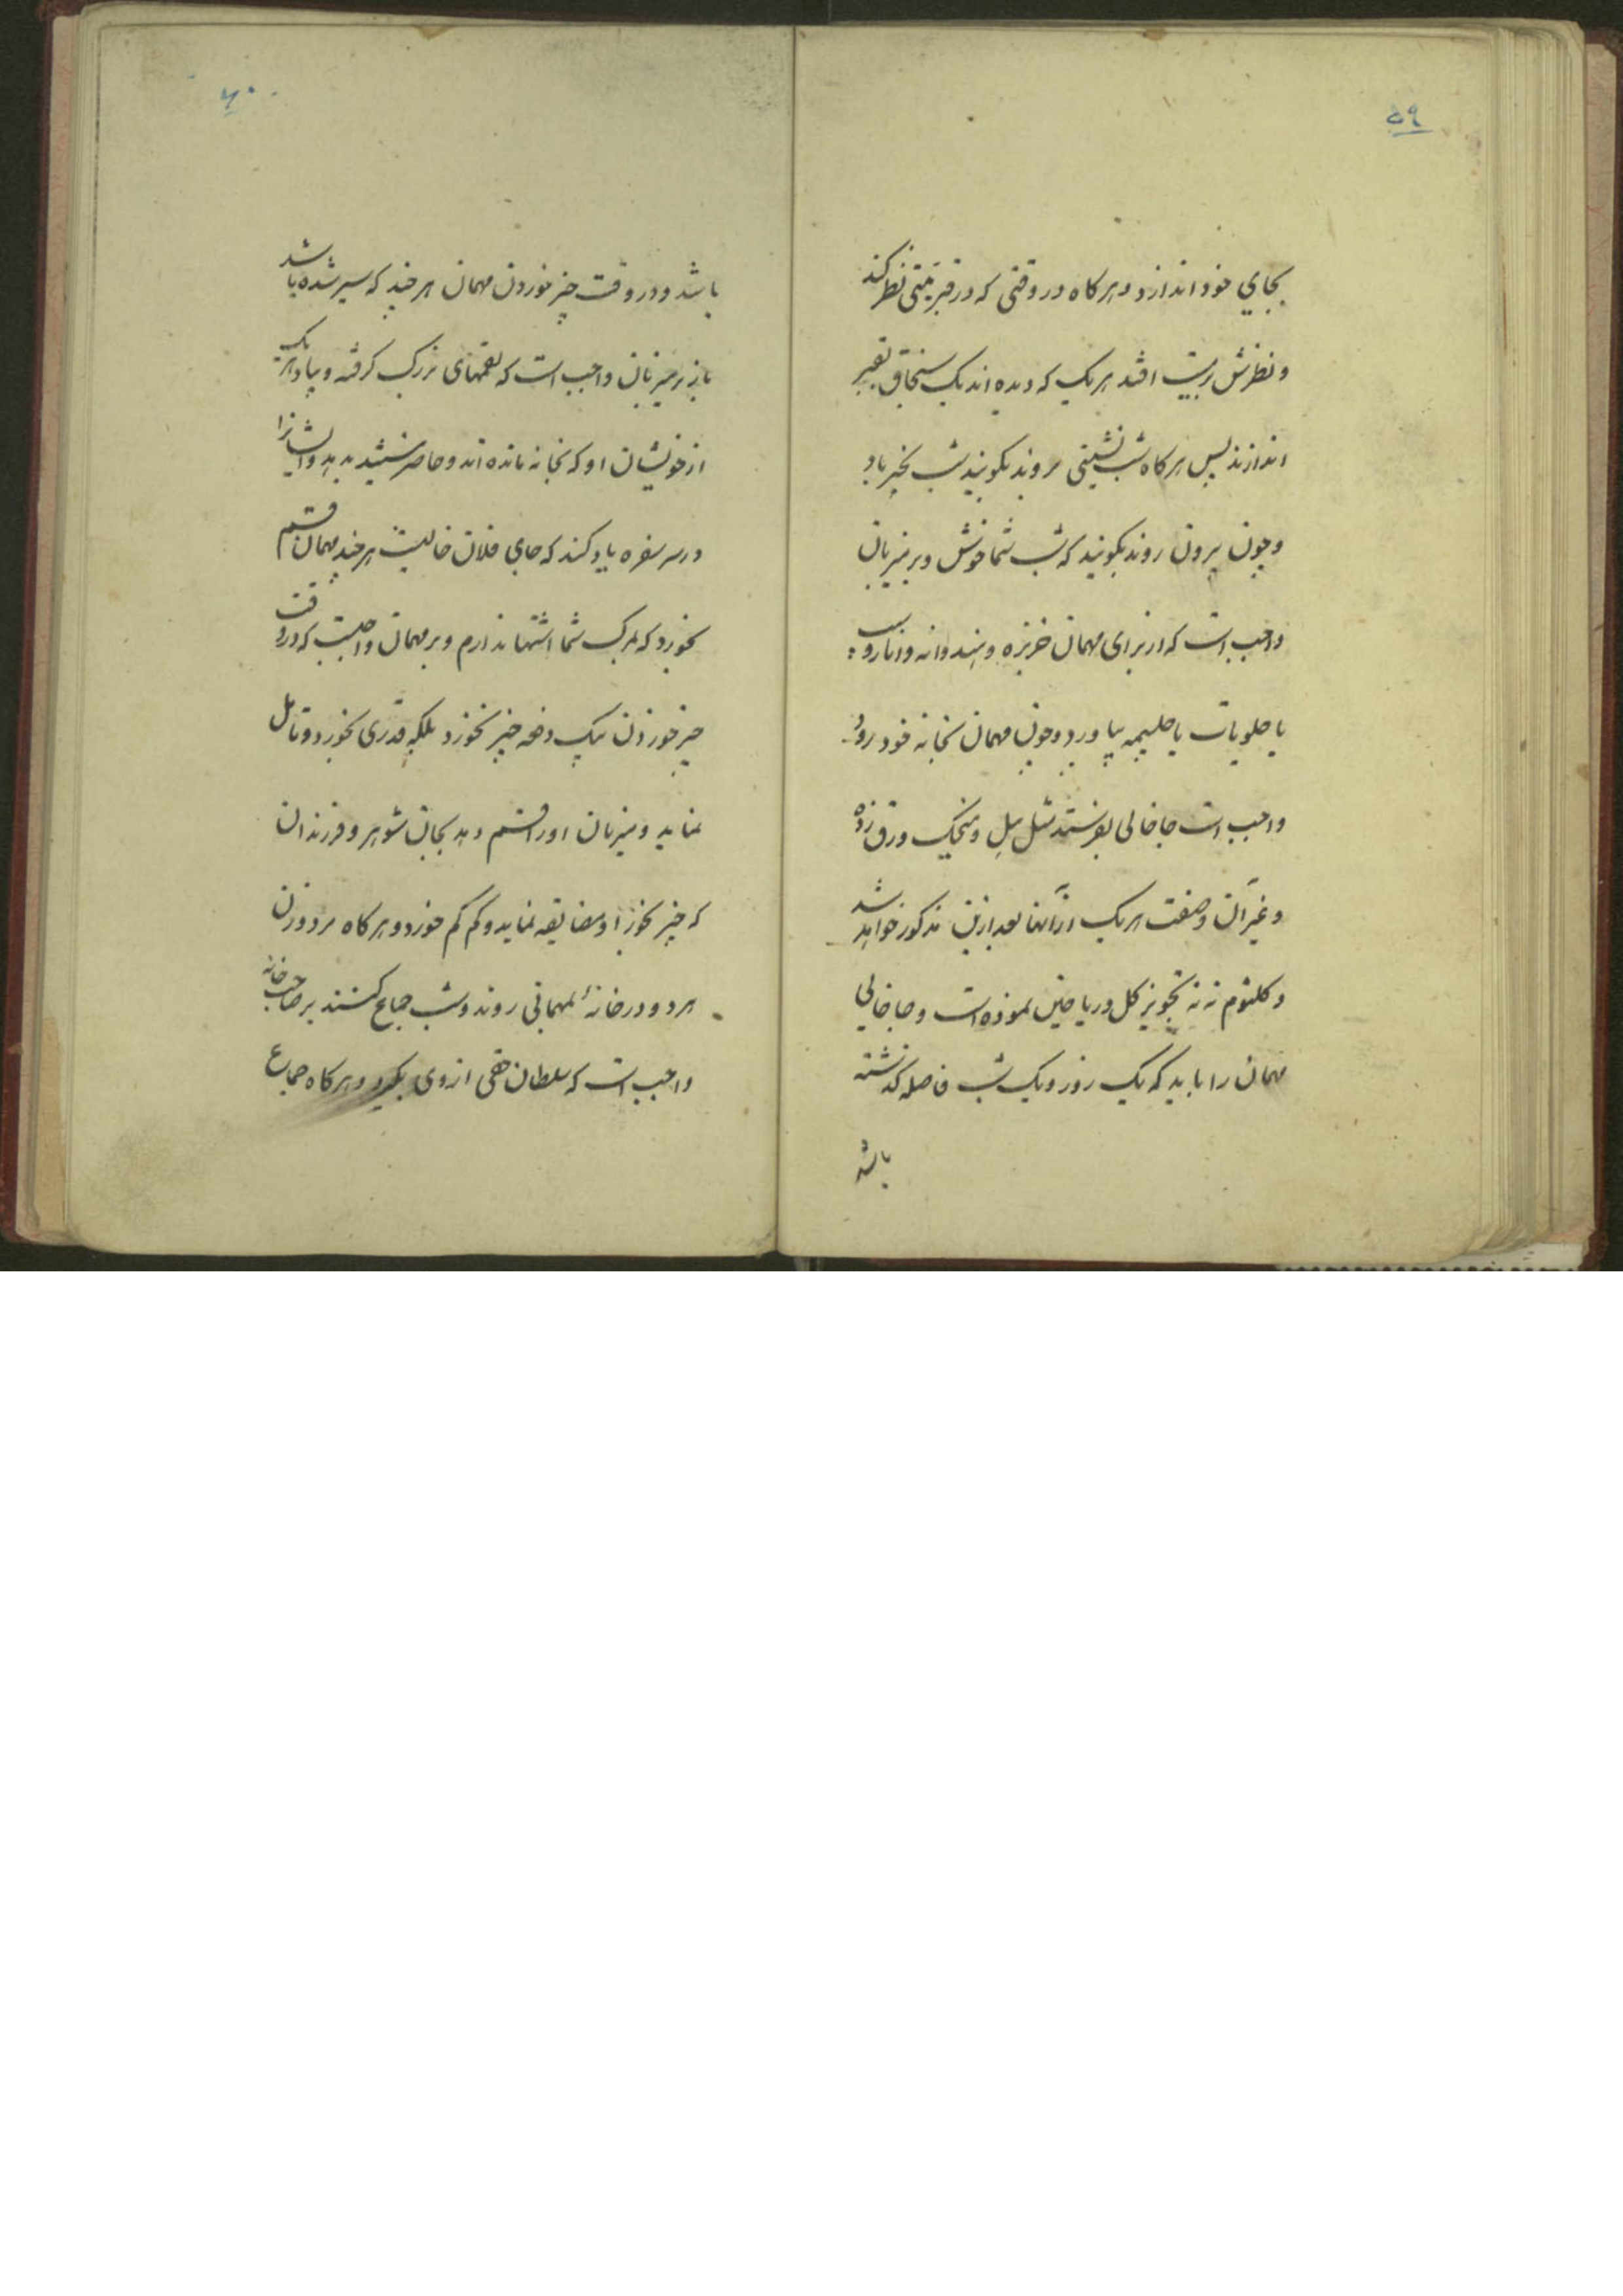 ۵۹
بجای خود اندازد و هرکاه در وقتی که در قبر میتی نظر کند
و نظرش بر میت افتد هر یک که دیده اند یک سنجاق بقبر
اندازند پس هرکاه شب نشینی روند بکویند شب بخیر باد
و چون بیرون روند بکویند که شب شما خوش و بر میزبان
واجب است که از برای مهمان خربزه و هندوانه و انار و
یا حلویات یا حلیمه بیاورد و چون مهمان بخانه خود رود
واجب است جاخالی بفرستد مثل هل و میخک ورق زده
و غیر آن و صفت هر یک از آنها بعد ازین مذکور خواهد شد
و کلثوم ننه تجویز کل و ریاحین نموده است و جاخالی
مهمان را باید که یک روز و یک شب فاصله کذشته
باشد
۶۰
باشد و در وقت چیز خوردن مهمان هر چند که سیر شده باشد
باز بر میزبان واجب است که لقمهای بزرک کرفته و بیاد هر یک
از خویشان او که بخانه مانده اند و حاضر نیستند بدهد و ایشانرا
در سر سفره یاد کند که جای فلان خالیست هر چند مهمان قسم
بخورد که بمرک شما اشتها ندارم و بر مهمان واجبست که در وقت
چیز خوردن بیک دفعه چیز نخورد بلکه قدری بخورد و تامل
نماید و میزبان او را قسم دهد بجان شوهر و فرزندان
که چیز بخور او مضایقه نماید و کم کم خورد و هرکاه مرد و زن
هر دو در خانهٔ بمهمانی روند و شب جماع کنند بر صاحب خانه
واجب است که سلطان حقی از وی بکیرد و هرکاه جماع